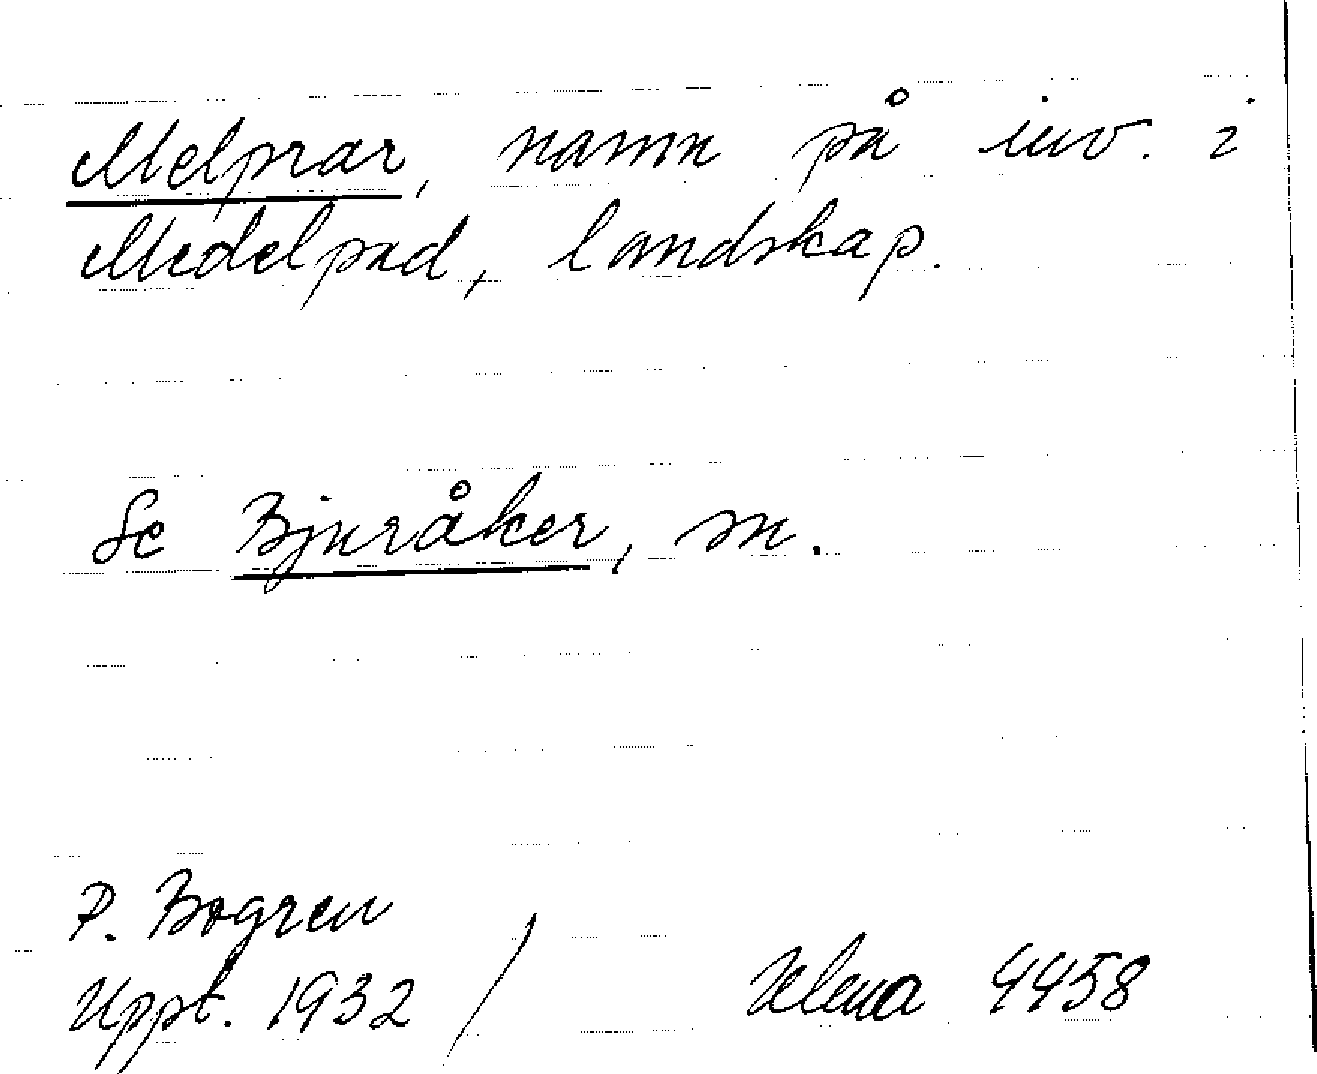 Melprar, namn på inv. i
Medelpad, landskap.
Se Bjuråker, sn.
P. Bogren
Uppt. 1932 /
4458